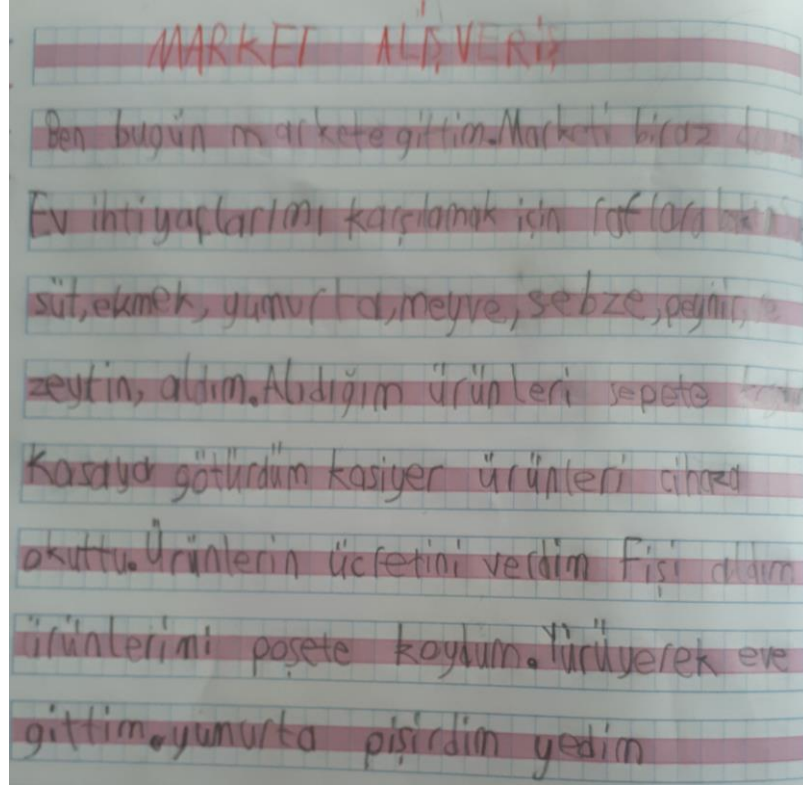 MARKET ALIŞVERİŞ
Ben bugün markete gittim.Marketi biraz
Ev ihtiyaçlarımı karşılamak için raflara
süt,ekmek, yumurta,meyve,sebze,peynir,
zeytin, aldım.Alıdığım ürünleri sepete
Kasaya götürdüm kasiyer ürünleri cihaza
okuttu.Ürünlerin ücretini verdim Fişi aldım
ürünlerimi poşete koydum.Yürüyerek eve
gittim.yumurta pişirdim yedim